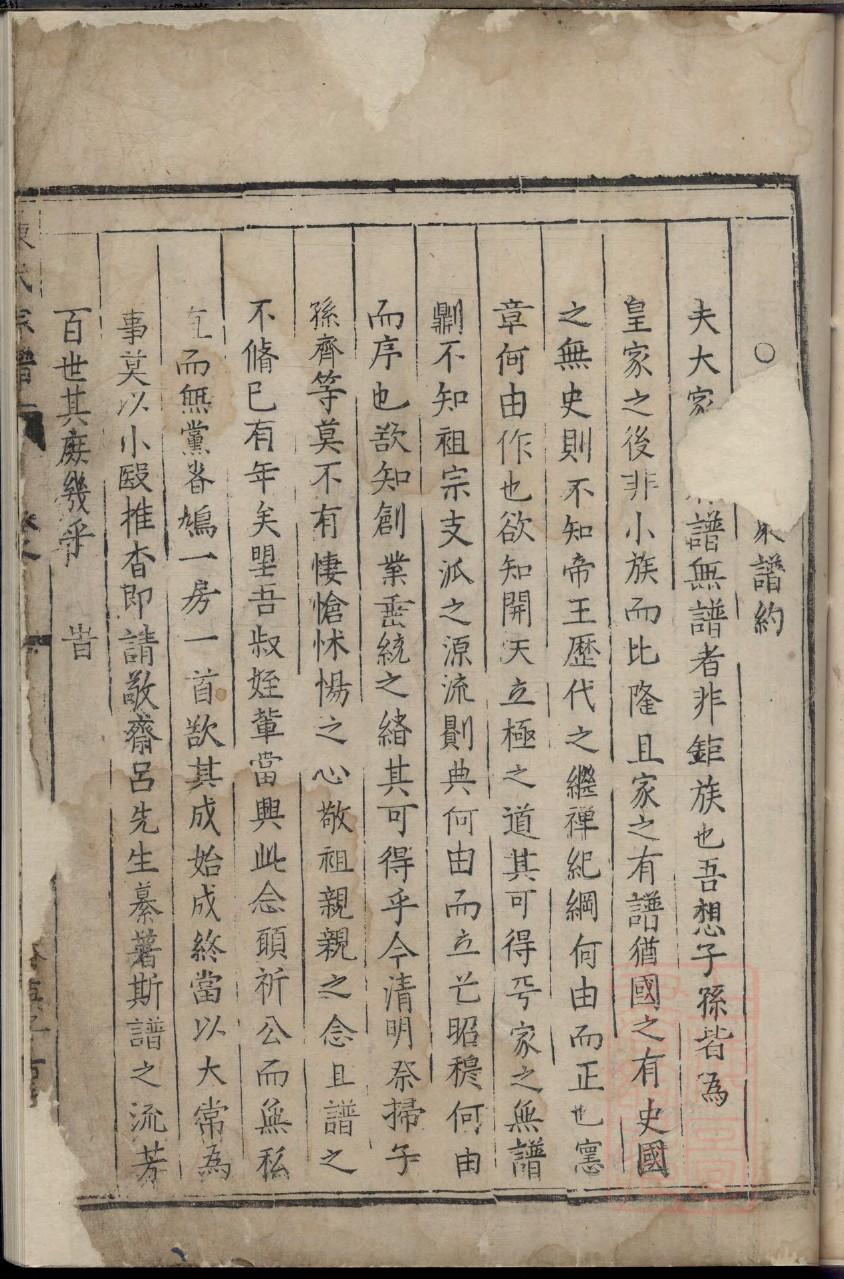 ○譜約
夫大家譜無譜者非鉅族也吾想子孫皆為
皇家之後非小族而比隆且家之有譜猶國之有史國
之無史則不知帝王歷代之繼禪紀綱何由而正也憲
章何由作也欲知開天立極之道其可得乎家之無譜
劘不知祖宗支派之源流劘典何由而立也昭穆何由
而序也欲知創業垂統之緒其可得乎今清明祭掃子
孫齊等莫不有悽愴怵惕之心敬祖親親之念且譜之
不脩已有年矣朢吾叔姪輩當興此念頭祈公而無私
而無黨眷鳩一房一首欲其成始成終當以大常為
事莫以小毆推杳即請敬齋呂先生纂著斯譜之流芳
百世其庶幾乎 旹
陳氏宗譜